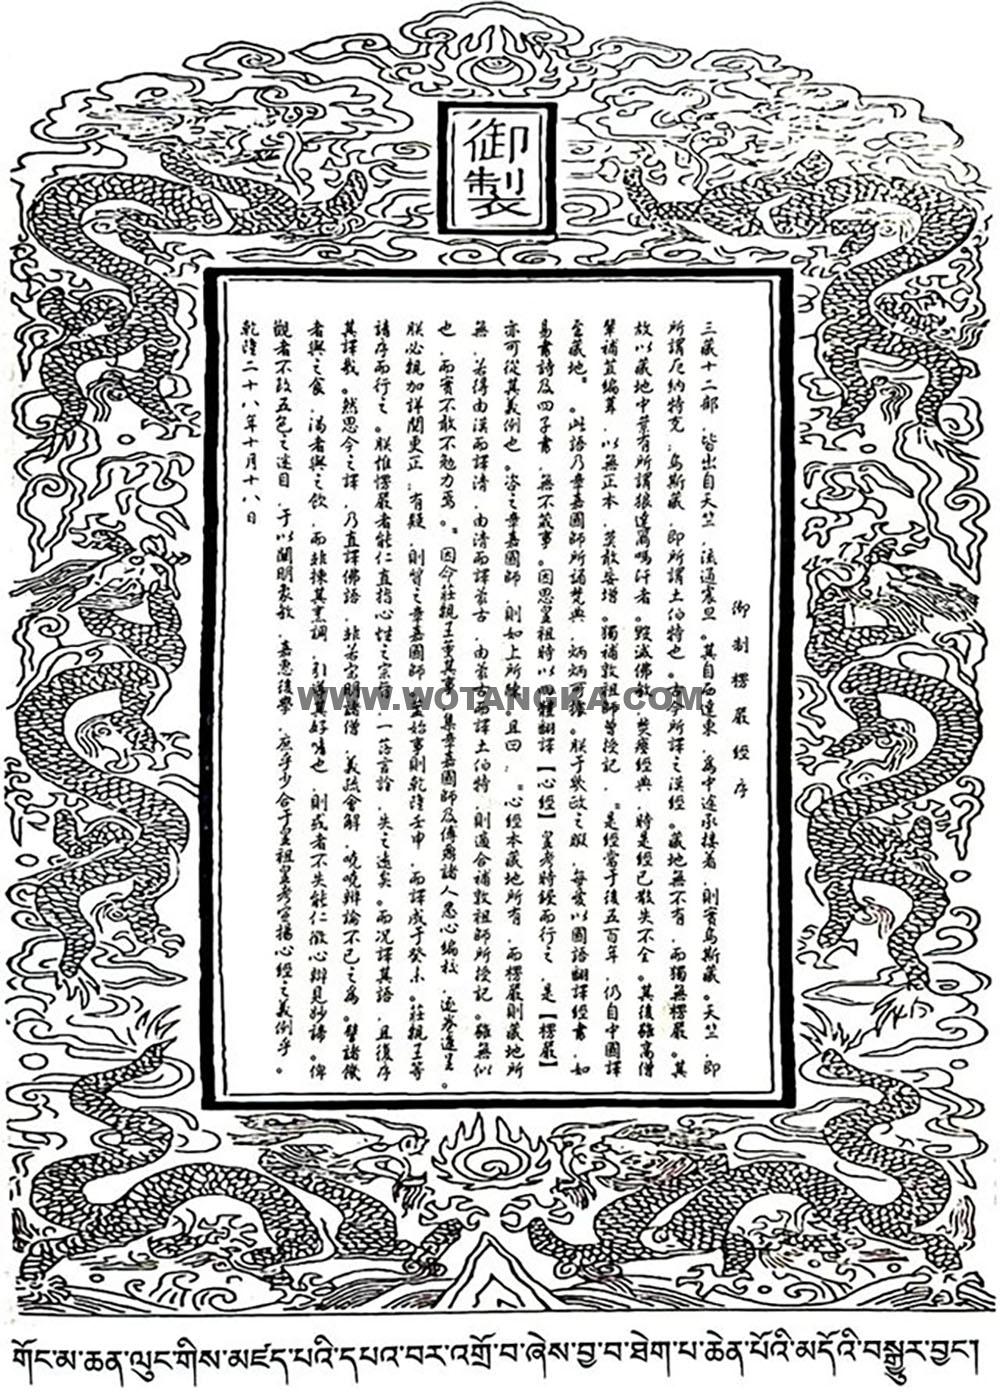 御製
御制楞嚴經序
三藏十二部，皆出自天竺，流通震旦。其自西達東，為中途承接者，則實烏斯藏。天竺，即
所謂厄納特克，烏斯藏，即所謂土伯特也。古今所譯之漢經。藏地無不有，而獨無楞嚴。其
故以藏地中葉有所謂狼達爾嗎汗者。毀滅佛教，焚瘞經典，時是經已散失不全。其後雖高僧
輩補苴編葺，以無正本，莫敢妄增。獨補敦祖師曾授記，是經當于後五百年，仍自中國譯
至藏地。。此語乃章嘉國師所誦梵典，炳炳可據。朕于幾政之暇，每愛以國語翻譯經書，如
易書詩及四子書，無不蕆事。因思皇祖時以四體翻譯【心經】皇考時鋟而行之，是【楞嚴】
亦可從其義例也。咨之章嘉國師，則如上所陳。且曰：。心經本藏地所有，而楞嚴則藏地所
無，若得由漢而譯清，由清而譯蒙古，由蒙古而譯土伯特，則適合補敦祖師所授記。雖無似
也，而實不敢不勉力焉。。因命莊親王董其事，集章嘉國師及傅鼐諸人悉心編校，逐卷進呈。
朕必親加詳閱更正，有疑，則質之章嘉國師。蓋始事則乾隆壬申，而譯成于癸未。莊親王等
請序而行之。朕惟楞嚴者能仁直指心性之宗旨，一落言詮，失之遠矣。而況譯其語，且復序
其譯哉。然思今之譯，乃直譯佛語，非若宗門諸僧，義疏會解，嘵嘵辯論不已之為。譬諸饑
者與之食，渴者與之飲，而非揀其烹調，引導其好嗜也，則或者不失能仁徵心辯見妙諦。俾
觀者不致五色之迷目，于以闡明象教，嘉惠後學，庶乎少合于皇祖皇考宣揚心經之義例乎。
乾隆二十八年十月十八日
WWW.WOTANGKA.COM
གོང་མ་ཆན་ལུང་གིས་མཛད་པའི་དཔའ་བར་འགྲོ་བ་ཞེས་བྱ་བ་ཐེག་པ་ཆེན་པོའི་མདོའི་བསྒྱུར་བྱང་།